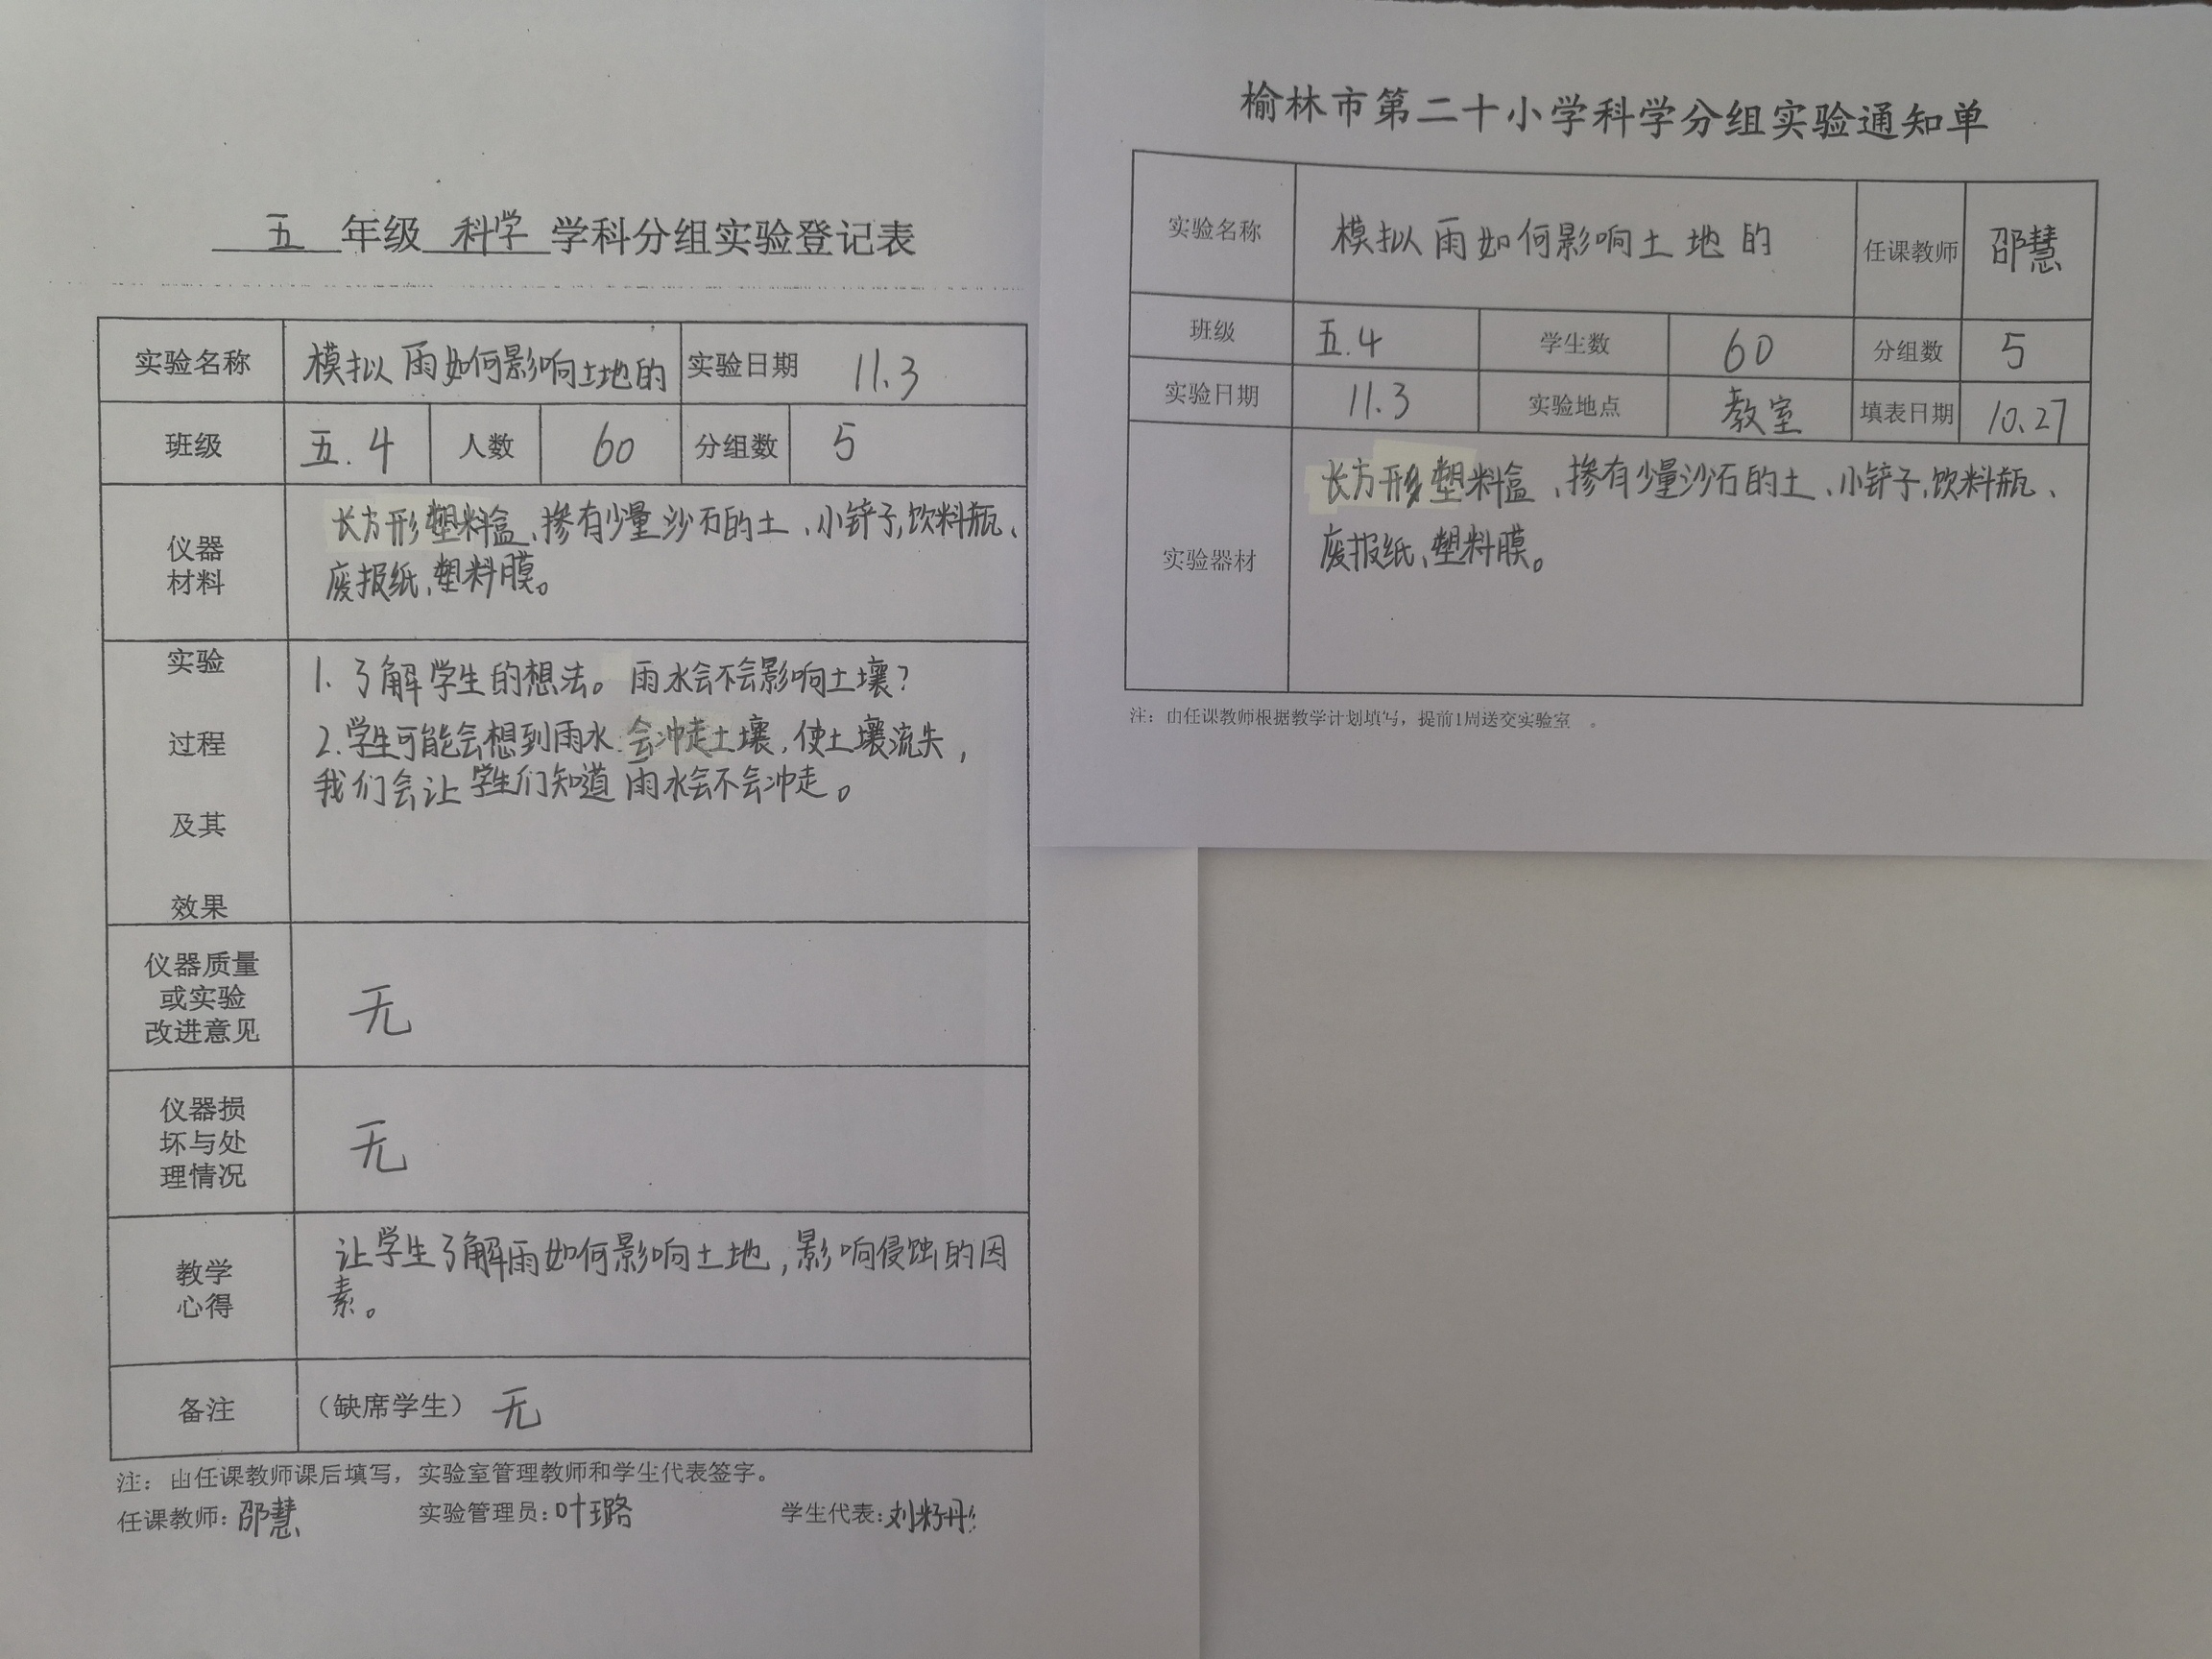 五 年级 科学 学科分组实验登记表
实验名称 模拟雨如何影响土地的 实验日期 11.3
班级 五.4 人数 60 分组数 5
仪器
材料
长方形塑料盒、掺有少量沙石的土、小铲子、饮料瓶、
废报纸、塑料膜。
实验
过程
及其
效果
1. 了解学生的想法。雨水会不会影响土壤?
2.学生可能会想到雨水会冲走土壤,使土壤流失,
我们会让学生们知道雨水会不会冲走。
仪器质量
或实验
改进意见
无
仪器损
坏与处
理情况
无
教学
心得
让学生了解雨如何影响土地,影响侵蚀的因
素。
备注 (缺席学生) 无
注:由任课教师课后填写,实验室管理教师和学生代表签字。
任课教师:邵慧 实验管理员:叶璐 学生代表:刘
榆林市第二十小学科学分组实验通知单
实验名称 模拟雨如何影响土地的 任课教师 邵慧
班级 五.4 学生数 60 分组数 5
实验日期 11.3 实验地点 教室 填表日期 10.27
实验器材
长方形塑料盒、掺有少量沙石的土、小铲子、饮料瓶、
废报纸、塑料膜。
注:由任课教师根据教学计划填写,提前1周送交实验室 。